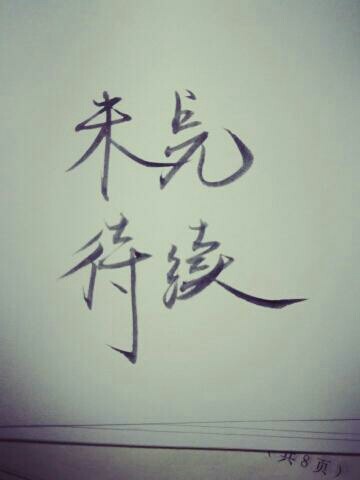 未完
待续
(共8页)